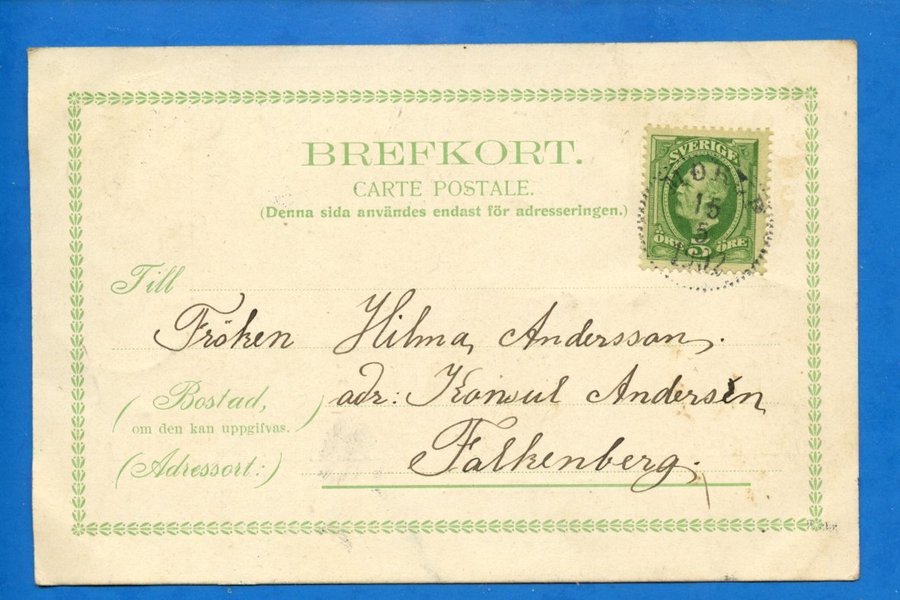 BREFKORT.
CARTE POSTALE.
(Denna sida användes endast för adresseringen.)
SVERIGE
15
5
1902
ÖRE 5 ÖRE
Till
Fröken Hilma Andersson.
(Bostad,
om den kan uppgifvas.)
adr: Konsul Andersén
(Adressort:)
Falkenberg.